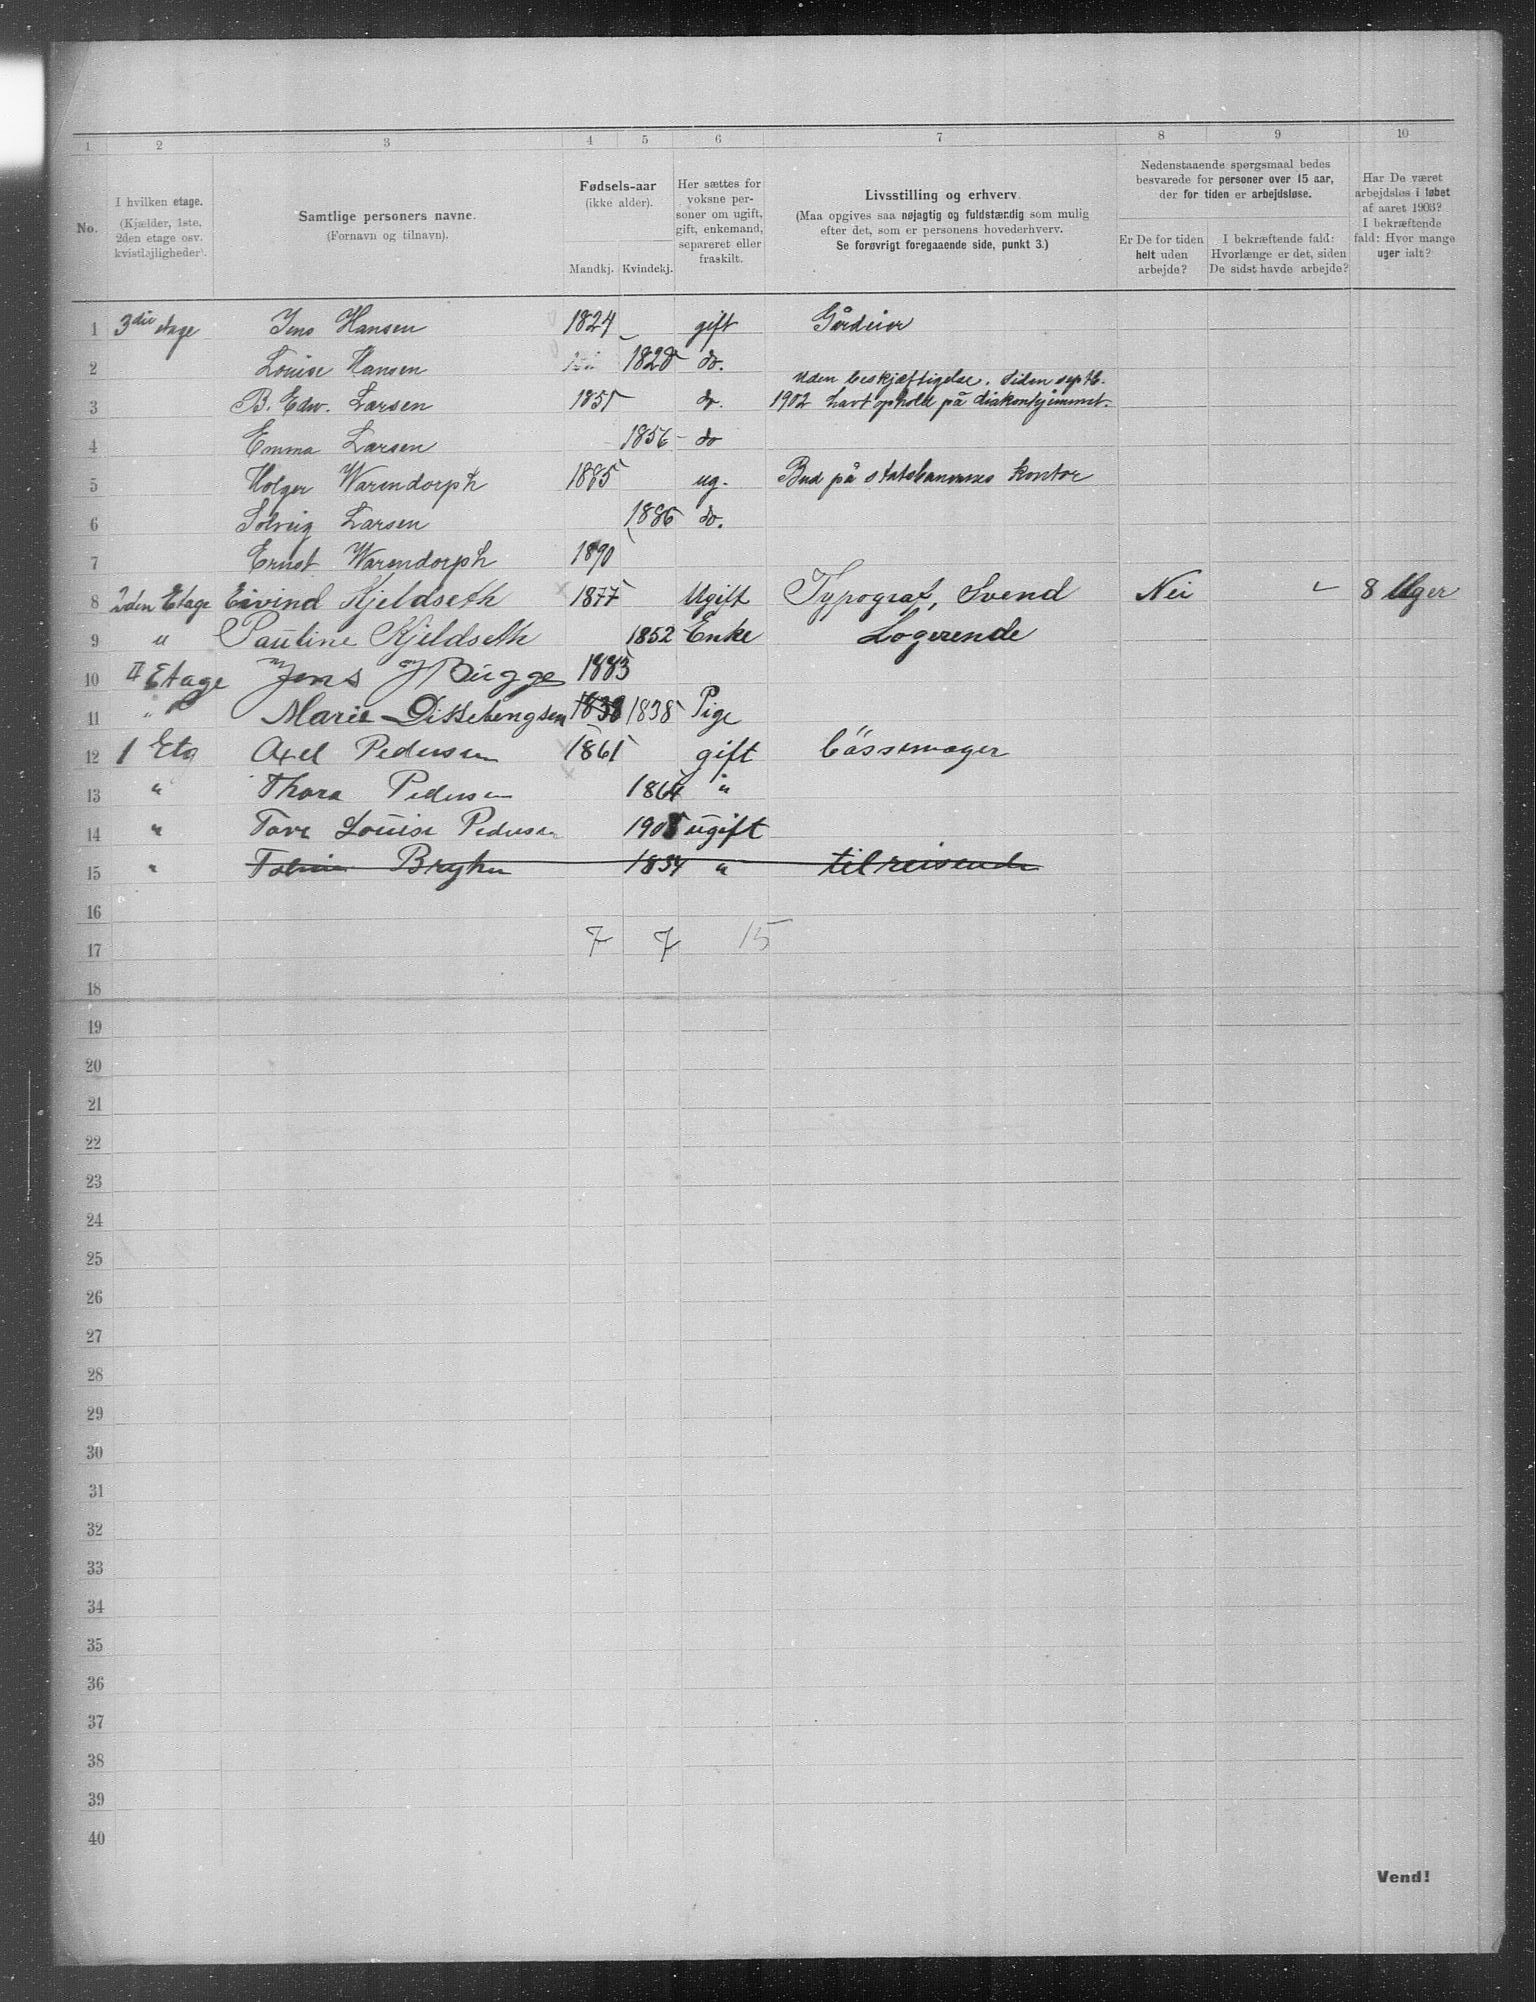 1 2 3 4 5 6 7 8 9 10
No.
I hvilken etage.
(Kjælder, 1ste, 2den etage osv. kvistlejligheder).
Samtlige personers navne.
(Fornavn og tilnavn).
Fødsels-aar
(ikke alder).
Mandkj. Kvindekj.
Her sættes for voksne personer om ugift, gift, enkemand, separeret eller fraskilt.
Livsstilling og erhverv.
(Maa opgives saa nøjagtig og fuldstændig som mulig
efter det, som er personens hovederhverv.
Se forøvrigt foregaaende side, punkt 3.)
Nedenstaaende spørgsmaal bedes
besvarede for personer over 15 aar,
der for tiden er arbejdsløse.
Er De for tiden helt uden arbejde?
I bekræftende fald: Hvorlænge er det, siden De sidst havde arbejde?
Har De været arbejdsløs i løbet af aaret 1903? I bekræftende fald: Hvor mange uger ialt?
1 3die etage Jens Hansen 1824 gift Gårdeier
2 Louise Hansen 1828 do.
3 B. Edw. Larsen 1851 do. Uden beskjæftigelse. Siden septb.
1902 havt ophold på diakonhjemmet.
4 Emma Larsen 1856 do
5 Holger Warendorph 1885 ug. Bud på statsbanernes kontor
6 Solveig Larsen 1886 do.
7 Ernst Warendorph 1890
8 2den Etage Eivind Kjeldseth 1877 Ugift Typograf, Svend Nei - 8 Uger
9 " Pauline Kjeldseth 1852 Enke Logerende
10 II Etage Jens Bugge 1883
11 " Marie 1838 1838 Pige
12 1 Etg Axel Pedersen 1861 gift
13 " Thora Pedersen 1864 "
14 " Tove Louise Pedersen 190 ugift
15 " 1834 " tilreisende
16
17 7 7 15
18
19
20
21
22
23
24
25
26
27
28
29
30
31
32
33
34
35
36
37
38
39
40
Vend!